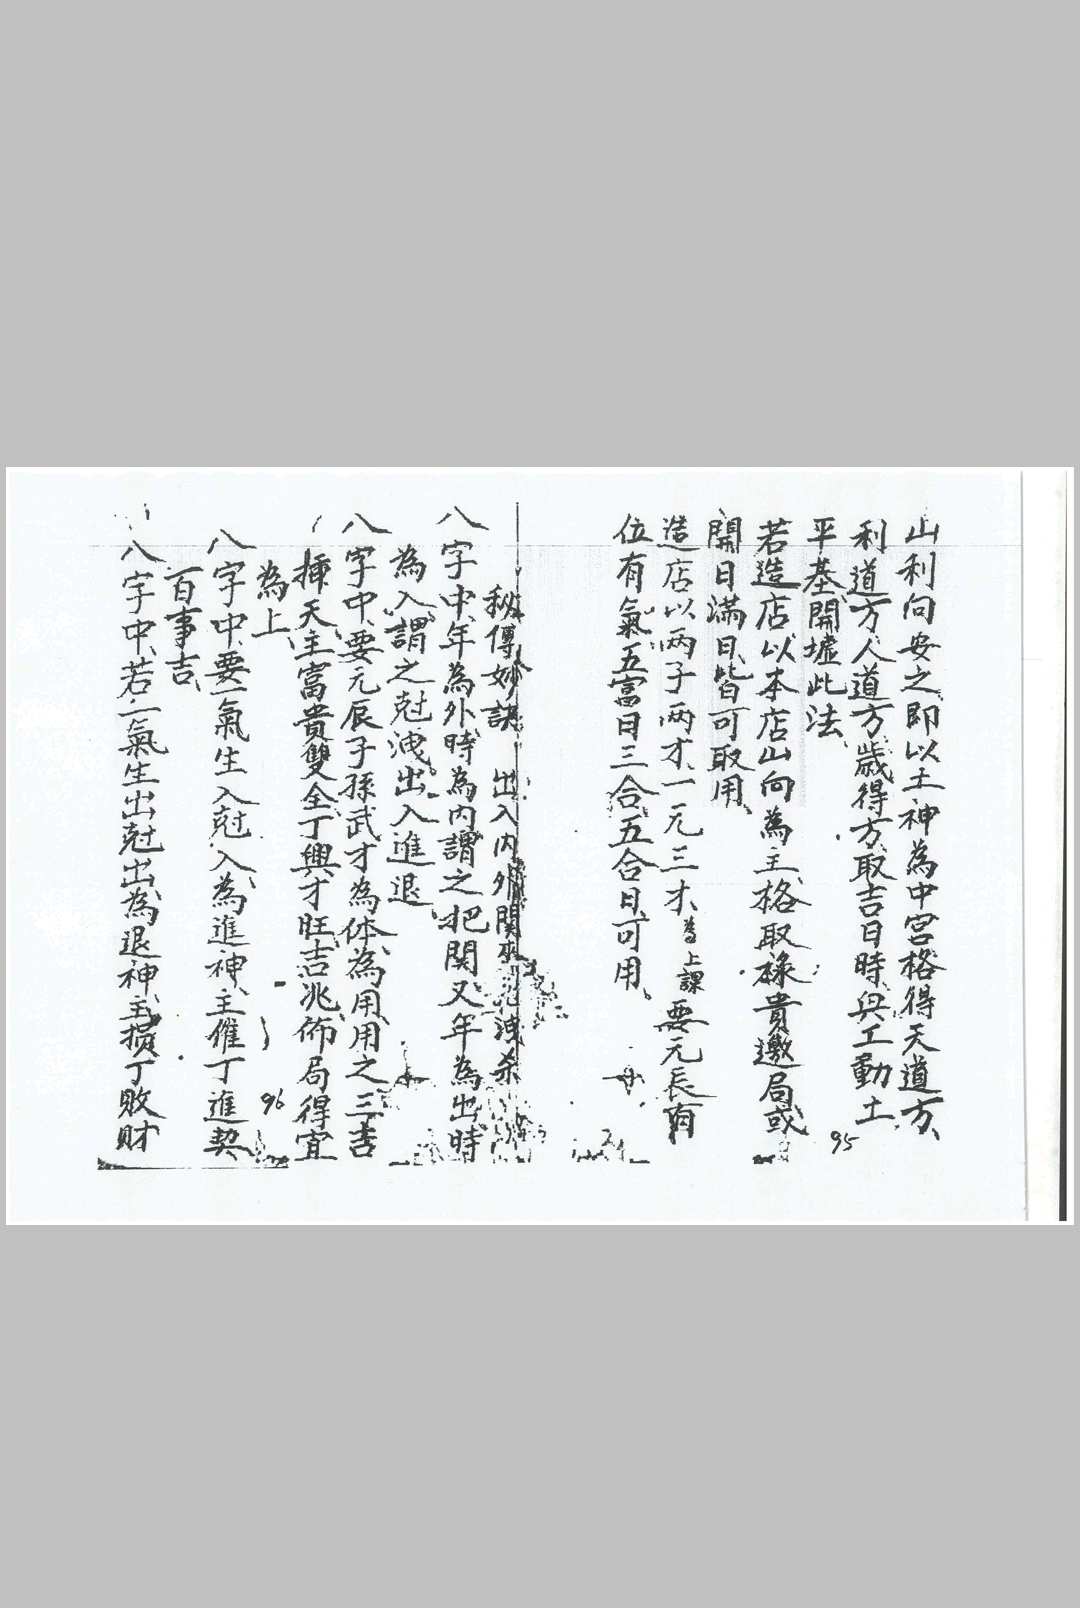 山利向安之、即以土神為中宮格得天道方、
利道方、人道方、歲得方、取吉日時、與工動土、
平基開墟此法、
若造店以本店山向為主格、取祿貴邀局或
開日滿日、皆可取用、
造店以兩子兩才、一元三才、為上課要元辰有
位有氣、五富日三合、五合日、可用、
95
秘傳妙訣 出入內外関 洩杀
八字中、年為外、時為內、謂之把関、又年為出、時
為入、謂之尅洩、出入進退、
八字中、要元辰子孫武才為体、為用、用之三吉
揷天、主富貴雙全、丁興才旺、吉兆佈局得宜
為上、
96
八字中、要一氣生入尅入、為進神、主催丁進契
百事吉、
八字中、若一氣生出尅出、為退神、主損丁敗財